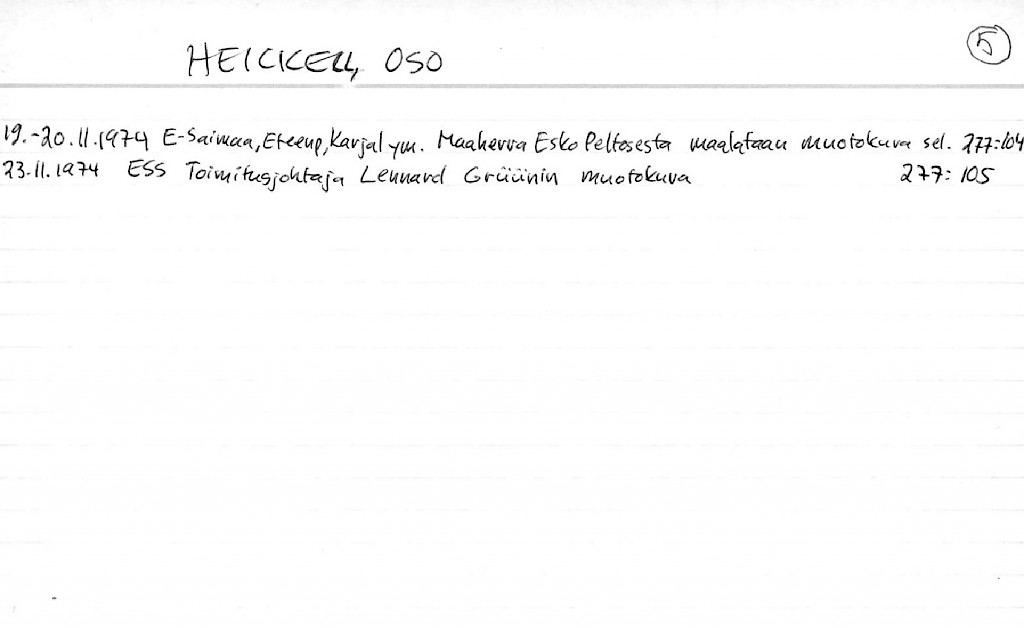 HEICKELL, OSO
5
19.-20.11.1974 E-Saimaa, Eteenp, Karjal ym. Maaherra Esko Peltosesta maalataan muotokuva sel. 277:104
23.11.1974 ESS Toimitusjohtaja Lennard Grüünin muotokuva 277: 105